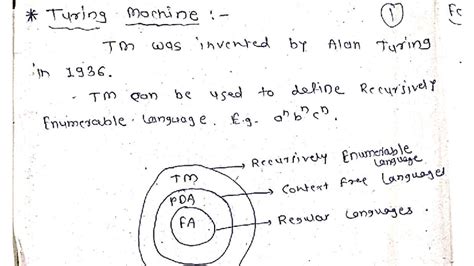 * Turing Machine :-
1
TM was invented by Alan Turing
in 1936.
- TM can be used to define Recursively
Enumerable language. E.g. aⁿbⁿcⁿ.
TM
PDA
FA
Recursively Enumerable
Language
Context Free Languages
Regular Languages.